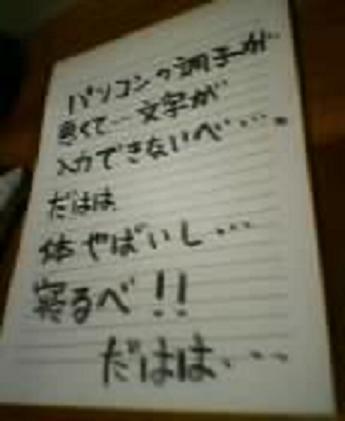 パソコンの調子が
悪くて…文字が
入力できないべ…。
だはは
体やばいし…
寝るべ!!
だはは…